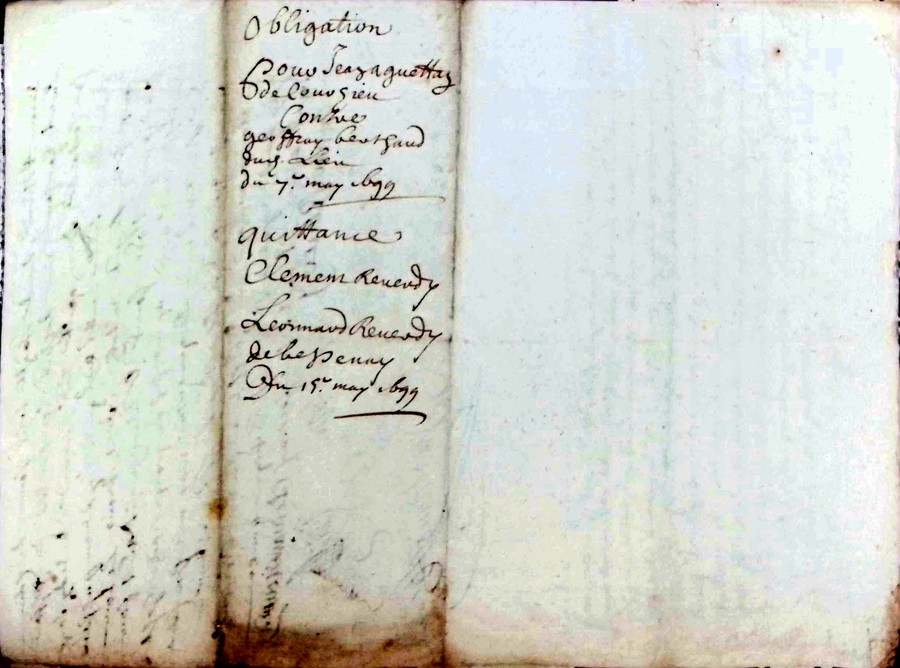 Obligation
Pour Jean aguettaz
de Coursieu
Contre
geoffray berthaud
dud. Lieu
du 7e may 1699
quittance
Clement Reverdy
Leonnard Reverdy
de bessenay
Du 15e may 1699